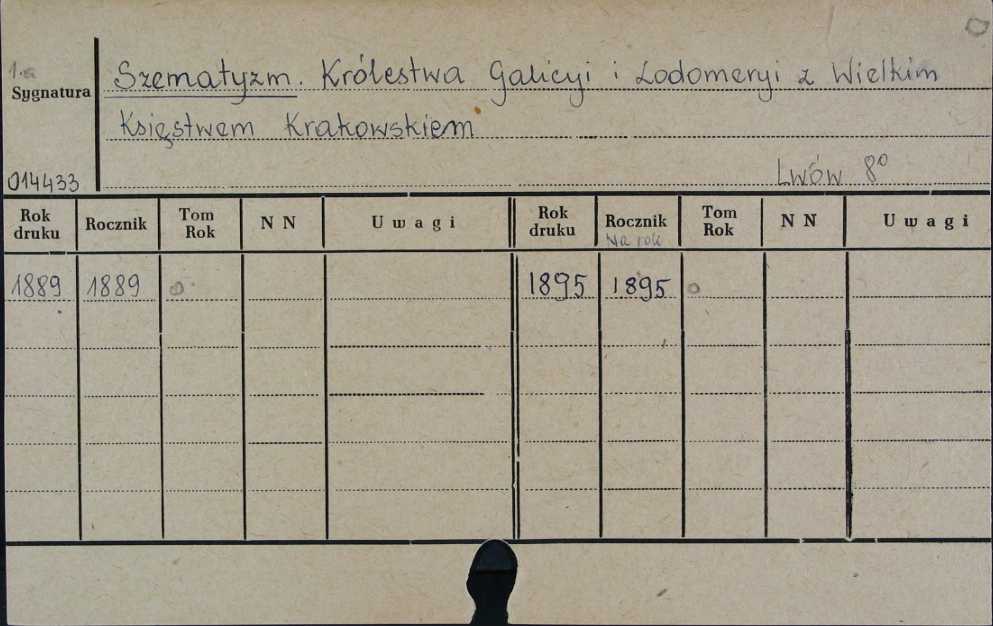 1.a
Sygnatura
Szematyzm. Królestwa Galicyi i Lodomeryi z Wielkim
Księstwem Krakowskiem
014433
Lwów 8º
Rok druku Rocznik Tom Rok N N Uwagi Rok druku Rocznik Na rok Tom Rok N N Uwagi
1889 1889 1895 1895